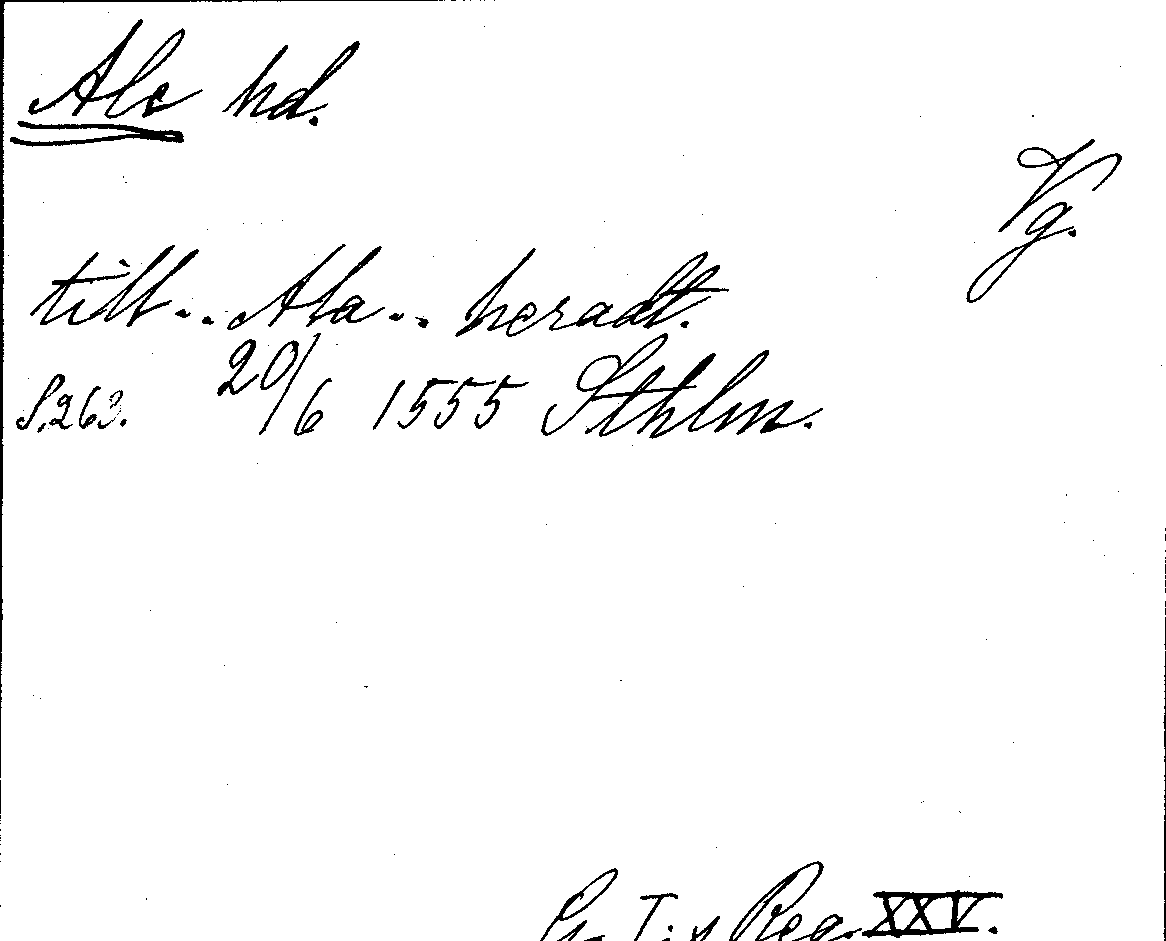 Ale hd.
Vg.
till.. Ala.. heradt.
S. 263. 20/6 1555 Sthlm.
G. I:s Reg. XXV.